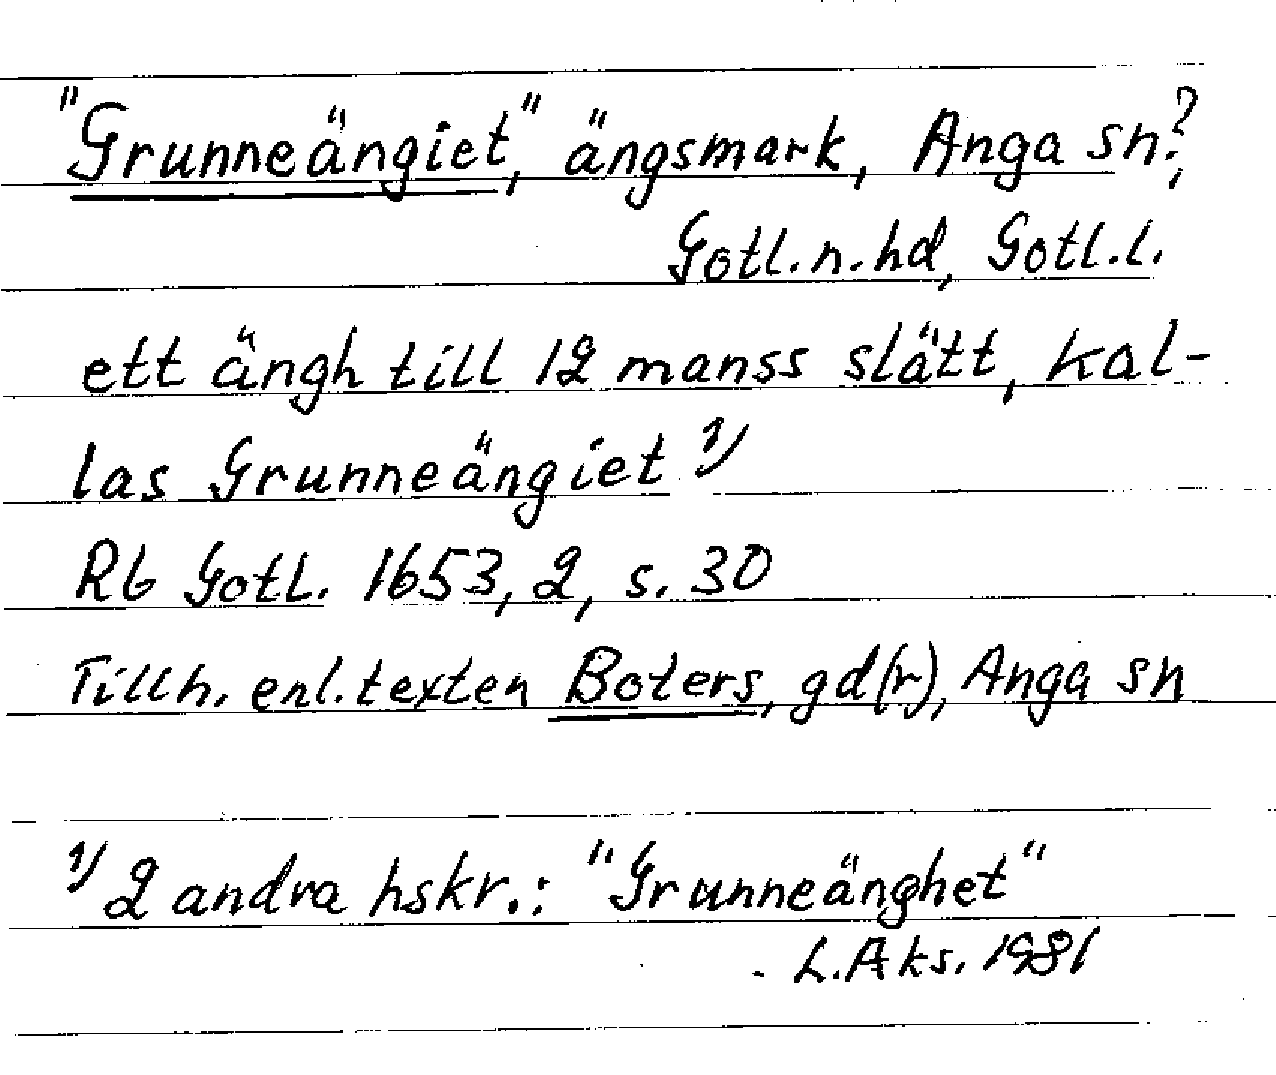 "Grunneängiet", ängsmark, Anga sn?,
Gotl. n. hd, Gotl. l.
ett ängh till 12 manss slätt, kal-
las Grunneängiet 1)
Rb Gotl. 1653, 2, s. 30
Tillh. enl. texten Boters, gd(r), Anga sn
1) 2 andra hskr.: "Grunneänghet"
L. Aks. 1981